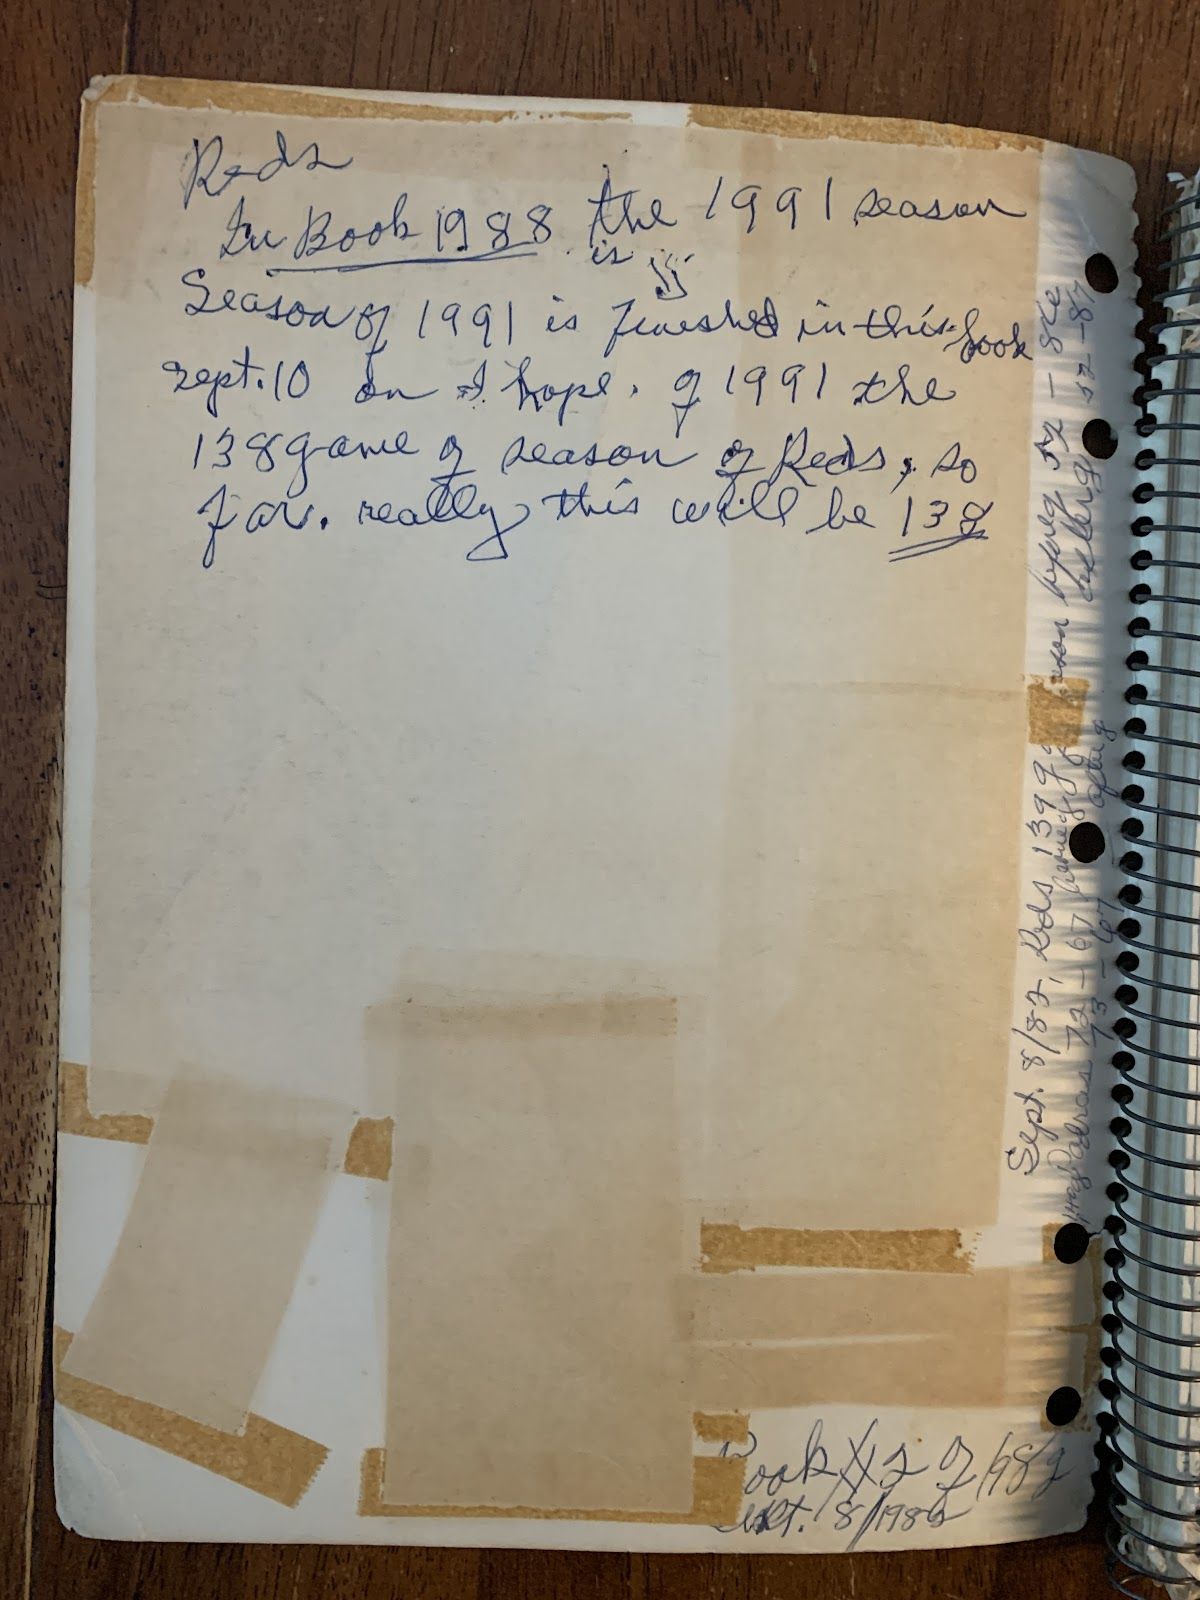 Reds
In Book 1988 the 1991 season
is
Season of 1991 is finished in this book
sept. 10 on I hope. of 1991 the
138 game of season of Reds, so
far. really this will be 138
Sept. 8/82, Reds 139 g
Padres 72 - 67
73 - 67
Book # 2 of 1982
8/1982